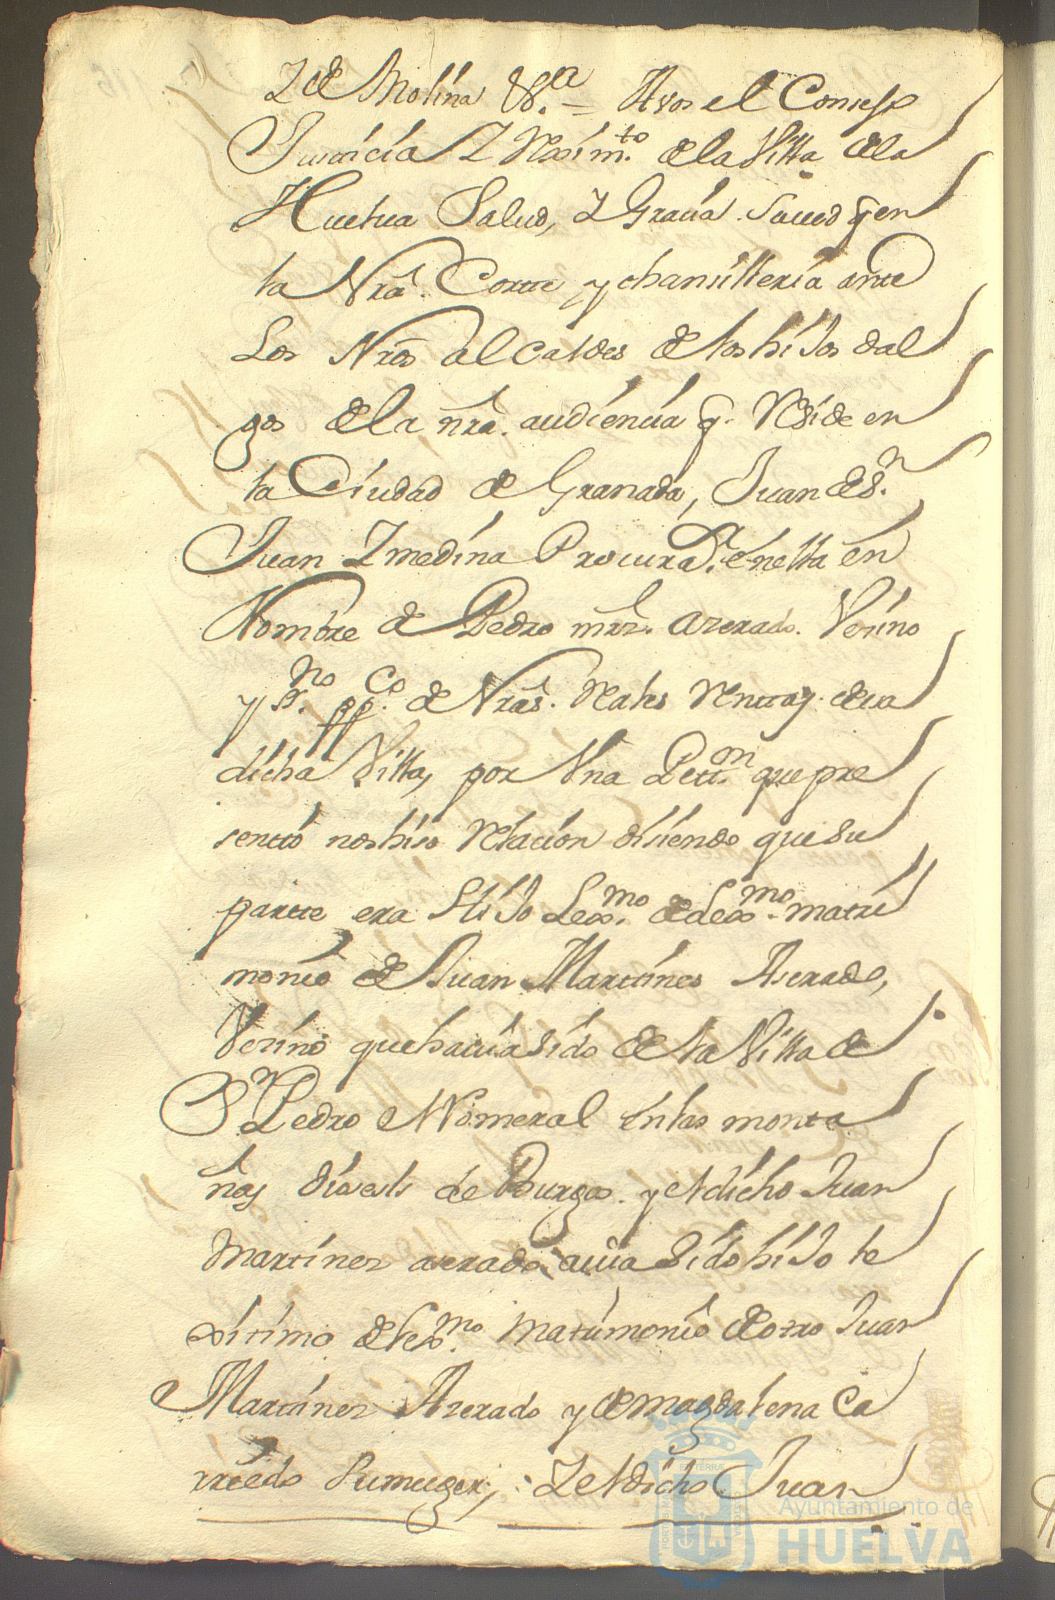 Y de Molina &.ª = Avos el Consejo
Justicia Y Reximto. de la Villa de la
Huelva Salud, Y Gracia. Saued q̃ en
la Nrã. Corte y chansilleria ante
Los Nrõs alcaldes de los hiJos dal
gos de la nrã. audiencia q̃. Reside en
la Ciudad de Granada, Juan de Sn.
Juan Y medina Procurador. en ella en
Nombre de Pedro mrnz. azerado. Vezino
y Sno. ppco. de Nrãs. Reales Renttas. de esa
dicha Villa, por Una Petton. que pre
sentto nos hiso Relacion disiendo que su
partte era HiJo Lexmo. de Lexmo. matri
monio de Juan Marttines Aserado,
Vezino que hauia sido de la Villa de
Sn Pedro el Romeral en las monta
ñas diosesis de Burgos. y el dicho Juan
Marttinez azerado auia sido hiJo le
xitimo de lexmo. Matrimonio de otro Juan
Marttinez Azerado y de magdalena Ca
rriedo su muger; Y el dicho Juan
Ayuntamiento de
HUELVA